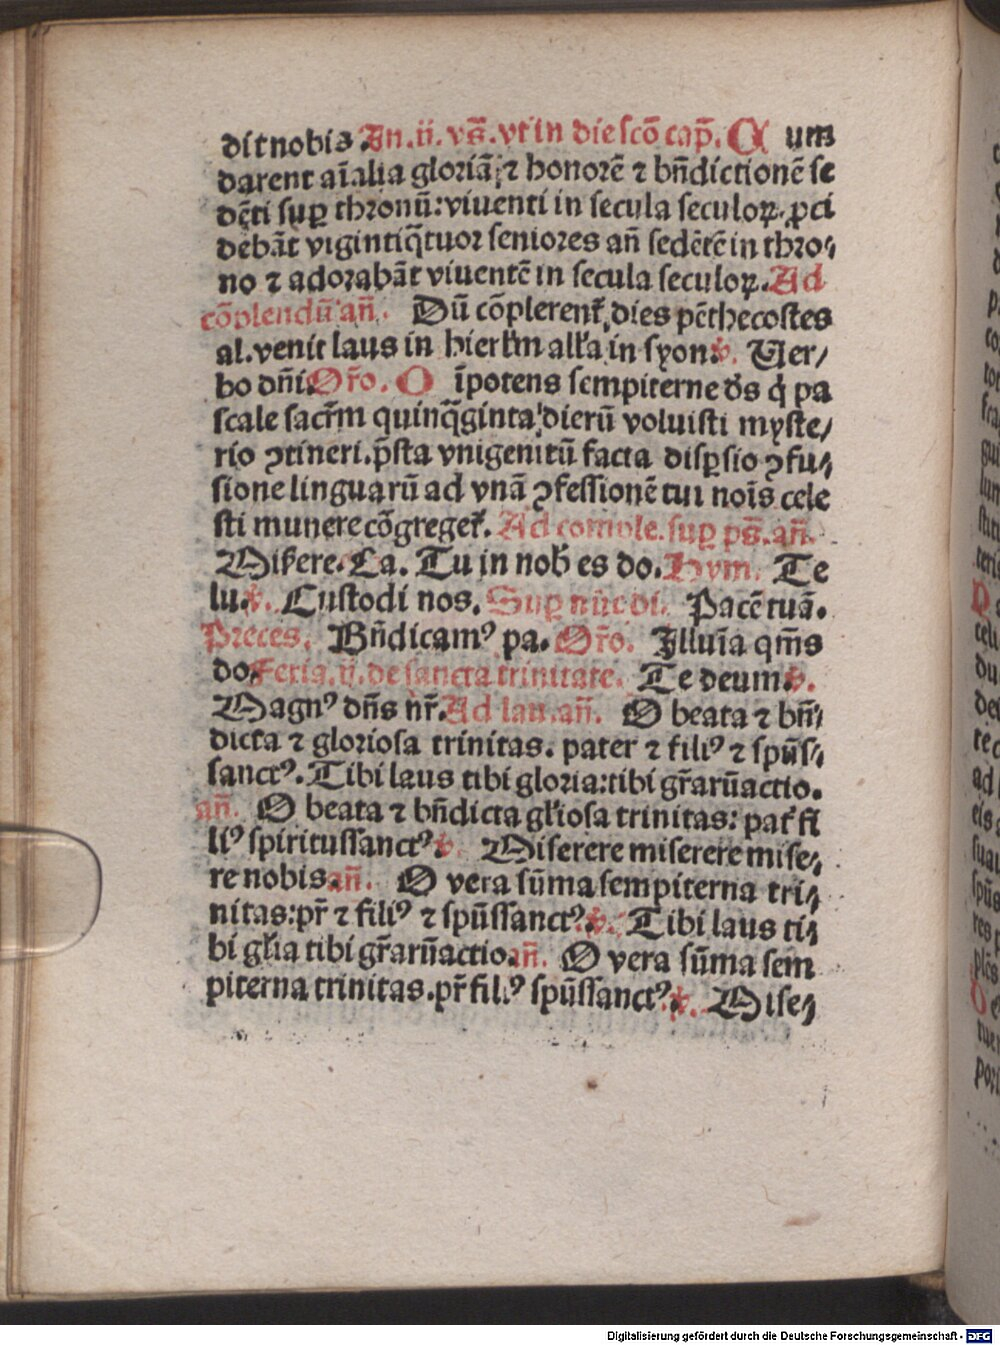 ditnobis. An. ij. vs̄. vt in die scō cap̄. C um
darent aīalia gloriā ⁊ honorē ⁊ bn̄dictionē se
dēti sup thronū: viuenti in secula seculoꝝ. ꝓci
debāt vigintiq̄tuor seniores an̄ sedētē in thro⸗
no ⁊ adorabāt viuentē in secula seculoꝝ. Ad
cōplendū an̄. Dū cōplerent᷑ dies pēthecostes
al. venit laus in hierłm alła in syon. ℣. Ver⸗
bo dn̄i. Or̄o. O īpotens sempiterne ds̄ q̇ pa
scale sacr̄m quinq̄ginta dierū voluisti myste⸗
rio ꝯtineri. p̄sta vnigenitū facta disꝑsio ꝯfu⸗
sione linguarū ad vnā ꝯfessionē tui nois̄ cele
sti munere cōgreget᷑. Ad comple. sup ps̄. an̄.
Miſere. Ca. Tu in nob̄ es do. Hym. Te
lu. ℣. Custodi nos. Sup nūc di. Pacē tuā.
Preces. Bn̄dicamꝰ pa. Or̄o. Illuīa qm̄s
do. Feria. ij. de sancta trinitate. Te deum. ℣.
Magnꝰ dn̄s nr̄. Ad lau. an̄. O beata ⁊ bn̄⸗
dicta ⁊ gloriosa trinitas. pater ⁊ filiꝰ ⁊ spūs⸗
sanctꝰ. Tibi laus tibi gloria: tibi gr̄arūactio.
an̄. O beata ⁊ bn̄dicta głiosa trinitas: pat᷑ fi
liꝰ spiritussanctꝰ. ℣. Miserere miserere mise⸗
re nobis. an̄. O vera sūma sempiterna tri⸗
nitas: pr̄ ⁊ filiꝰ ⁊ spūssanctꝰ. ℣. Tibi laus ti⸗
bi głia tibi gr̄arūactio. an̄. O vera sūma sem
piterna trinitas. pr̄ filiꝰ spūssanctꝰ. ℣. Mise⸗
Digitalisierung gefördert durch die Deutsche Forschungsgemeinschaft - DFG